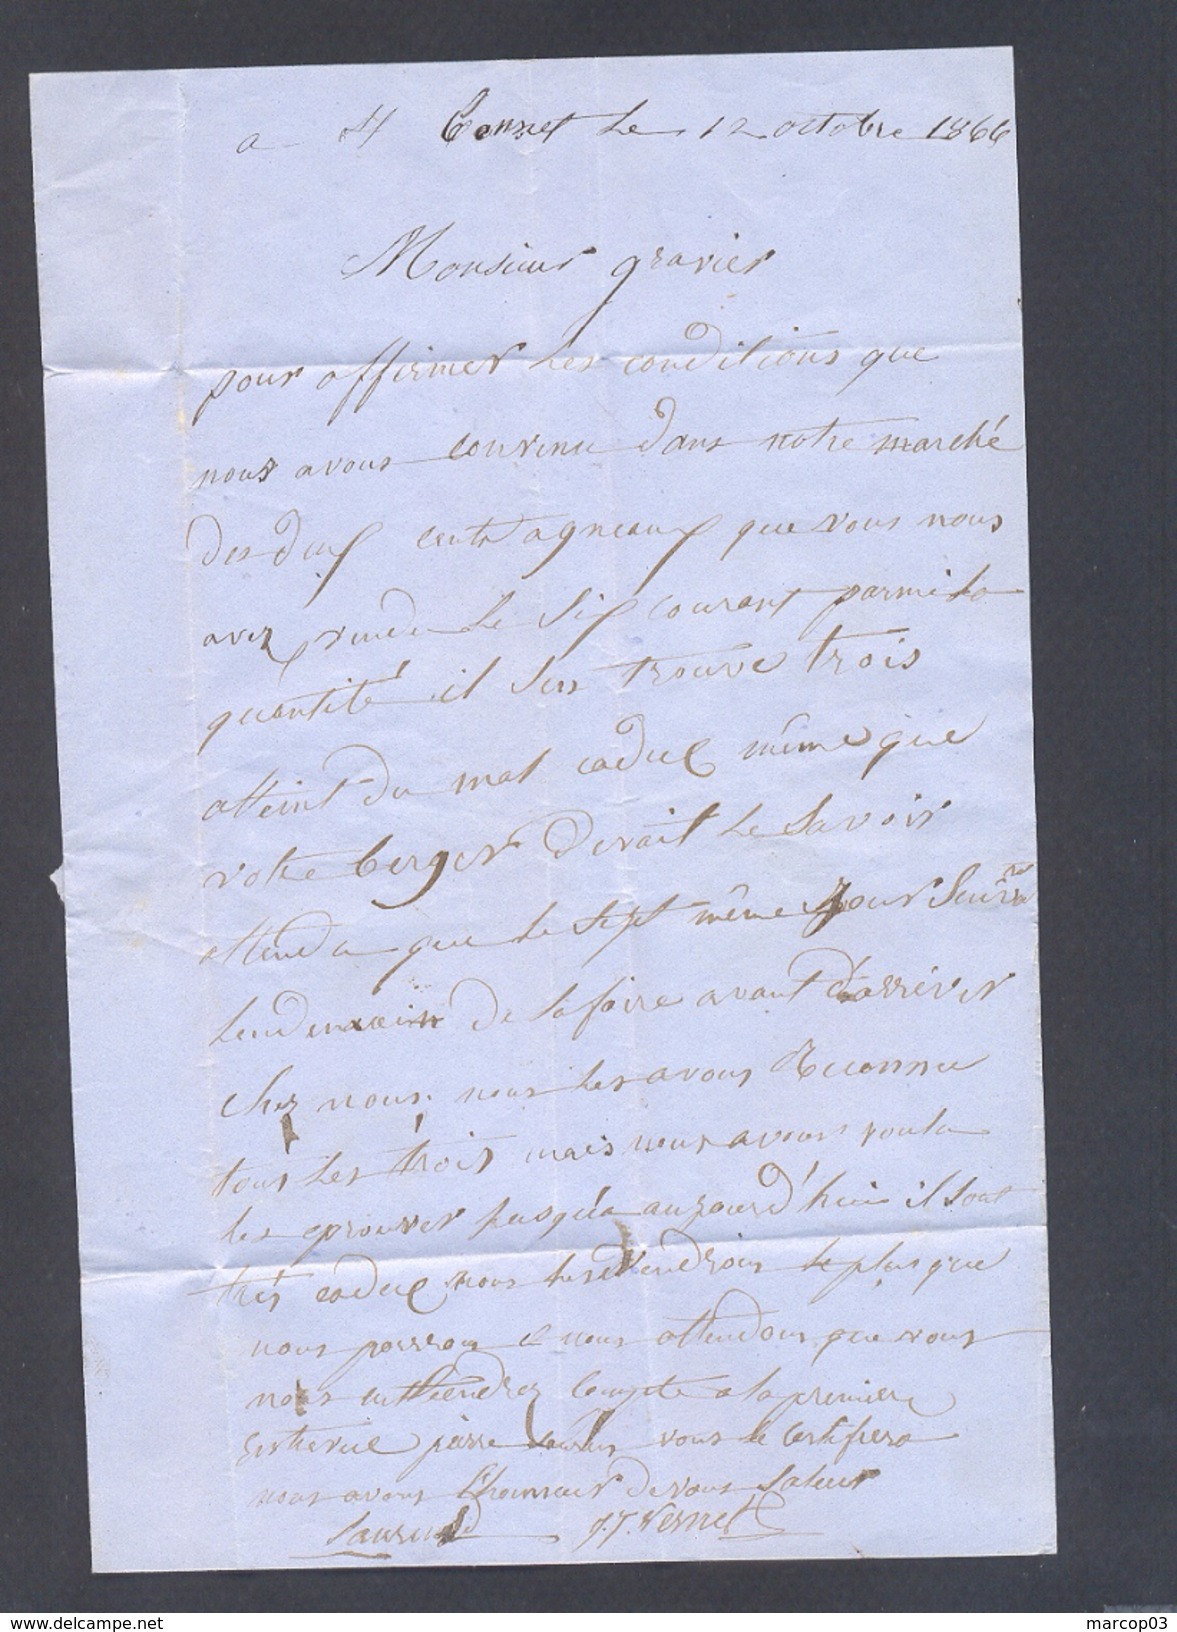 a St Bonnet le 12 octobre 1866
Monsieur gravier
pour affirmer les conditions que
nous avons convenu dans notre marché
des deux cents agneaux que vous nous
avez vendu le six courant parmi la
quantité il sen trouve trois
atteint du mal caduc même que
votre berger devait le savoir
attendu que le sept même jour
lendemain de la foire avant d'arriver
chez nous nous les avons reconnu
tous les trois mais nous avons voulu
les eprouver jusqu'a aujourd'hui il sont
très caduc nous les vendrons le plus que
nous pourron et nous attendons que vous
nous en tiendrez compte a la premiere
pierre vous le certifiera
nous avons l'honneur de vous saluer
Laurend J.J. Vernet
marcop03